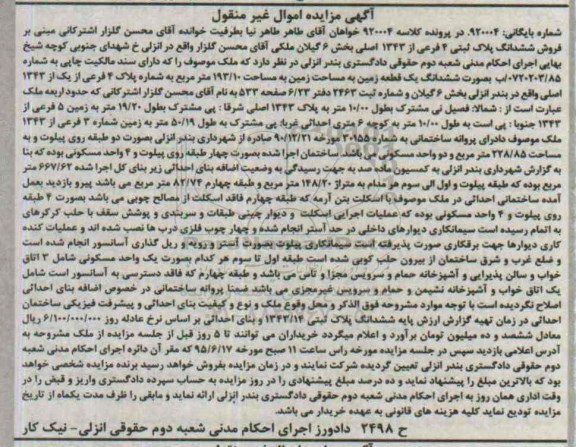 آگهی مزایده اموال غیر منقول
شماره بایگانی: ۹۲۰۰۰۴ در پرونده کلاسه ۹۲۰۰۰۴ خواهان آقای طاهر طاهر نیا بطرفیت خوانده آقای محسن گلزار اشترکانی مبنی بر
فروش ششدانگ پلاک ثبتی ۴ فرعی از ۱۳۴۳ اصلی بخش ۶ گیلان ملکی آقای محسن گلزار واقع در انزلی خ شهدای جنوبی کوچه شیخ
بهایی اجرای احکام مدنی شعبه دوم حقوقی دادگستری بندر انزلی در نظر دارد که ملک موصوف را که دارای سند مالکیت چاپی به شماره
۰۷۲۰۲۰۳/۸۵ب بصورت ششدانگ یک قطعه زمین به مساحت زمین به مساحت ۱۹۳/۱۰ متر مربع به شماره پلاک ۴ فرعی از یک از ۱۳۴۳
اصلی واقع در بندر انزلی بخش ۶ گیلان و شماره ثبت ۲۴۶۳ دفتر ۶/۲۳ صفحه ۵۳۳ به نام آقای محسن گلزار اشترکانی که حدود اربعه ملک
عبارت است از : شمالا: فصیل نی مشترک بطول ۱۰/۰۰ متر به پلاک ۱۳۴۳ اصلی شرقا : پی مشترک بطول ۱۹/۲۰ متر به زمین ۵ فرعی از
۱۳۴۳ جنوبا : پی است به طول ۱۰/۰۰ متر به کوچه ۶ متری احداثی غربا: پی مشترک به طول ۵۰/۱۹ متر به زمین شماره ۳ فرعی از ۱۳۴۳
ملک موصوف دادرای پروانه ساختمانی به شماره ۳۰۱۵۵ مورخه ۹۰/۱۲/۳۱ صادره از شهرداری بندر انزلی بصورت دو طبقه روی پیلوت و به
مساحت ۲۲۸/۸۵ متر مربع و دو واحد مسکونی می باشد. ساختمان اجرا شده بصورت چهار طبقه روی پیلوت و ۴ واحد مسکونی بوده که بنا
به گزارش شهرداری بندر انزلی به کمسیون ماده صد به جهت رسیدگی به وضعیت اضافه بنای احداثی زیر بنای کل اجرا شده ۶۶۷/۶۲ متر
مربع بوده که طبقه پیلوت و اول الی سوم هر مدام به متراژ ۱۴۸/۲۰ متر مربع و طبقه چهارم ۸۲/۷۴ متر مربع می باشد پیرو بازدید بعمل
آمده ساختمانی احداثی در ملک موصوف با اسکلت بتن آرمه که طبقه چهارم فاقد اسکلت از مصالح چوبی می باشد بصورت ۴ طبقه
روی پیلوت و ۴ واحد مسکونی بوده که عملیات اجرایی اسکلت و دیوار چینی طبقات و سربندی و پوشش سقف با حلب کرکرهای
به اتمام رسیده است سیمانکاری دیوارهای داخلی در حد آستر انجام شده و چهار چوب فلزی درب ها نصب شده اند و عملیات کنده
کاری دیوارها جهت برقکاری صورت پذیرفته است سیمانکاری پیلوت بصورت آستر و رویه و ریل گذاری آسانسور انجام شده است
و ضلع غرب و شرق ساختمان از بیرون حلب کوبی شده است طبقه اول تا سوم هر کدام بصورت یک واحد مسکونی شامل ۳ اتاق
خواب و سالن پذیرایی و آشپزخانه حمام و سرویس مجزا و تاس می باشد و طبقه چهارم که فاقد دسترسی به آسانسور است شامل
یک اتاق خواب و آشپزخانه نشیمن و حمام و سرویس غیرمجزی می باشد ضمنا پروانه ساختمانی در خصوص اضافه بنای احداثی
اصلاح نگردیده است با توجه موارد مشروحه فوق الذکر و محل وقوع ملک و نوع و کیفیت بنای احداثی و پیشرفت فیزیکی ساختمان
احداثی در زمان تهیه گزارش ارزش پایه ششدانگ پلاک ثبتی ۱۳۴۳/۱۴ و بنای احداثی بر اساس نرخ عادله روز ۶/۱۰۰/۰۰۰/۰۰۰ ریال
معادل ششصد و ده میلیون تومان برآورد و اعلام میگردد خریداران می توانند تا ۵ روز قبل از جلسه مزایده از ملک مشروحه به
آدرس اعلامی بازدید سپس در جلسه مزایده مورخه راس ساعت ۱۱ صبح مورخه ۹۵/۶/۱۷ که مقر آن دائره اجرای احکام مدنی شعبه
دوم حقوقی دادگستری بندر انزلی تعیین گردیده شرکت نمایند و در زمان مزایده بفروش خواهد رسید برنده مزایده شخصی خواهد
بود که بالاترین مبلغ را پیشنهاد نماید و ده درصد مبلغ پیشنهادی را در روز مزایده به حساب سپرده دادگستری واریز و قبض را در
وقت اداری همان روز به اجرای احکام مدنی شعبه دوم حقوقی دادگستری بندر انزلی ارائه نماید و مابقی را ظرف مدت یکماه از تاریخ
مزایده تودیع نماید کلیه هزینه های قانونی به عهده خریدار می باشد.
ح ۲۴۹۸ دادورز اجرای احکام مدنی شعبه دوم حقوقی انزلی- نیک کار